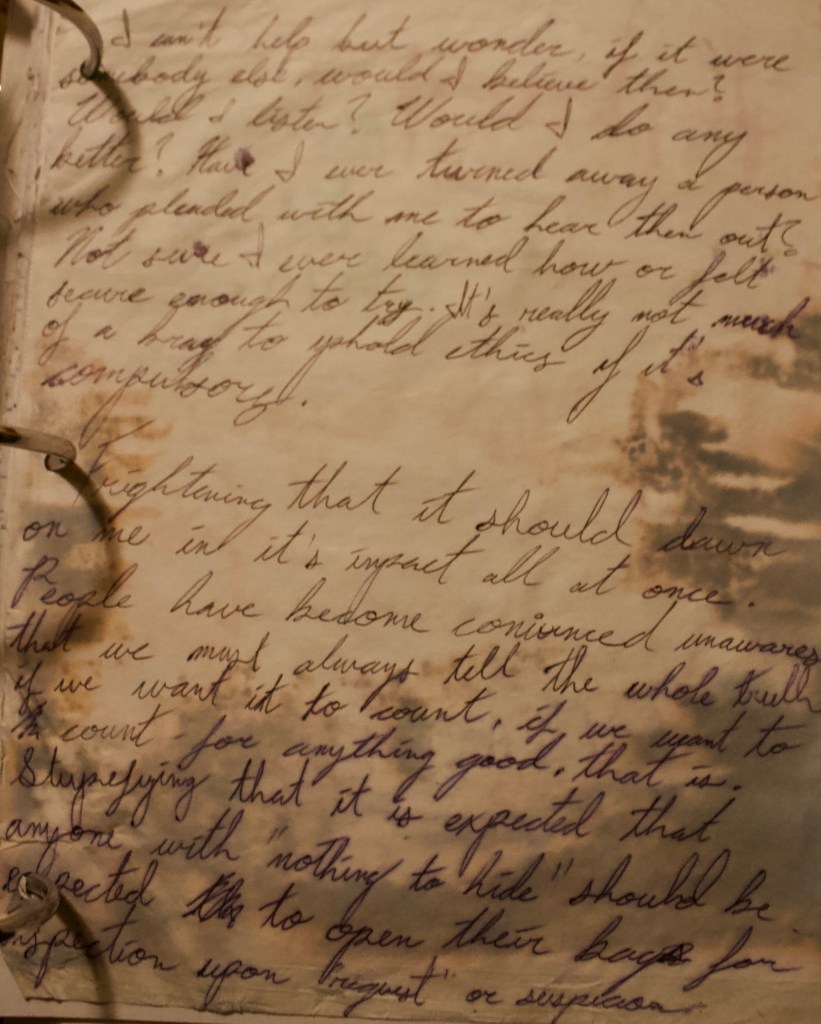 I can't help but wonder, if it were
somebody else, would I believe them?
Would I listen? Would I do any
better? Have I ever turned away a person
who pleaded with me to hear them out?
Not sure I ever learned how or felt
secure enough to try. It's really not much
of a brag to uphold ethics if it's
compulsory.
Frightening that it should dawn
on me in it's impact all at once.
People have become convinced unawares
that we must always tell the whole truth
if we want it to count, if we want to
count for anything good, that is.
Stupefying that it is expected that
anyone with "nothing to hide" should be
expected to open their bags for
inspection upon "request" or suspicion